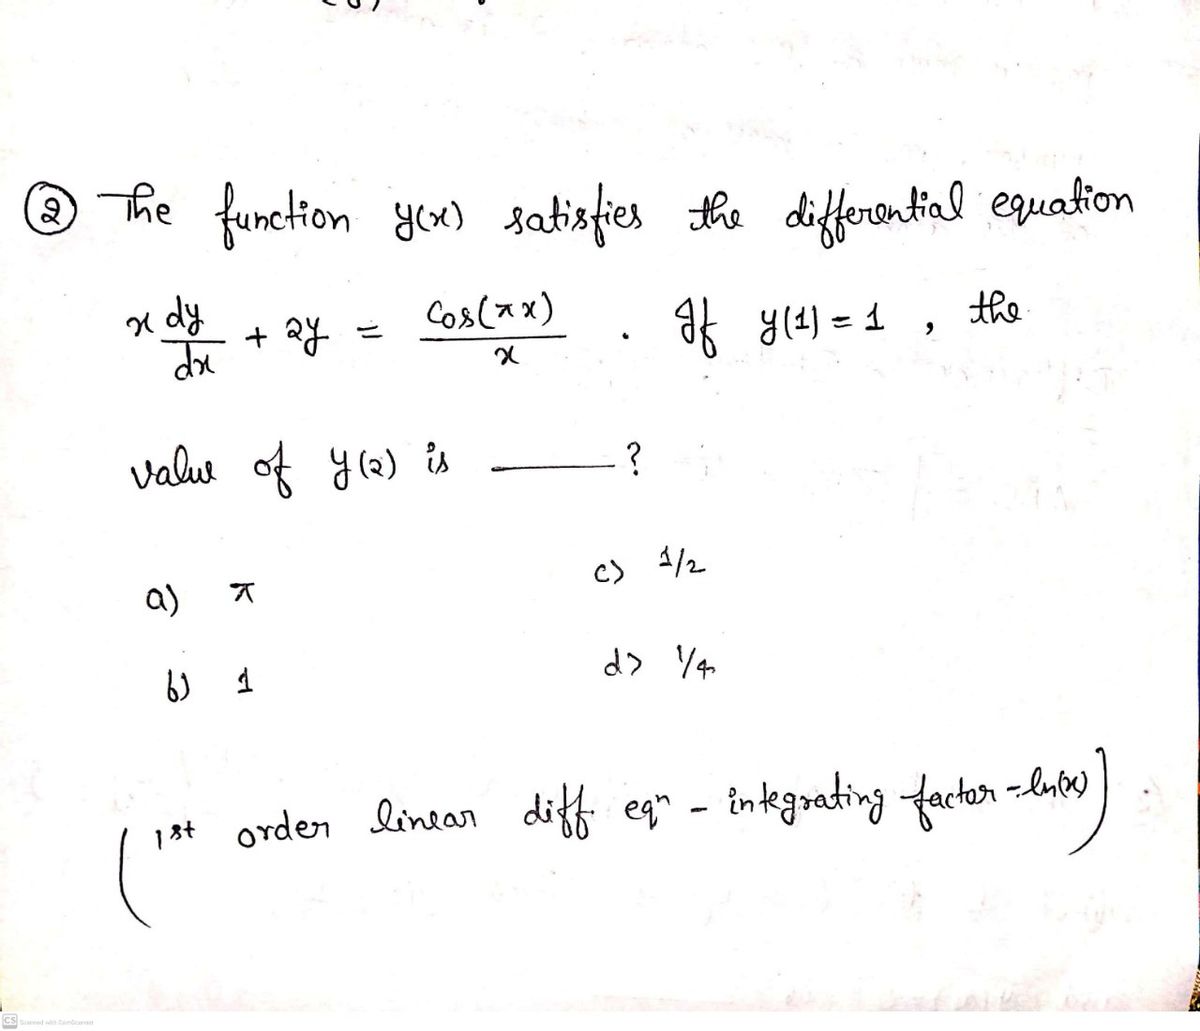 ② The function y(x) satisfies the differential equation
x dy/dx + 2y = Cos(πx)/x . If y(1) = 1 , the
value of y(2) is ______ ?
a) π
c) 1/2
b) 1
d) 1/4
(1st order linear diff. eqn - integrating factor = ln(x))
CS Scanned with CamScanner